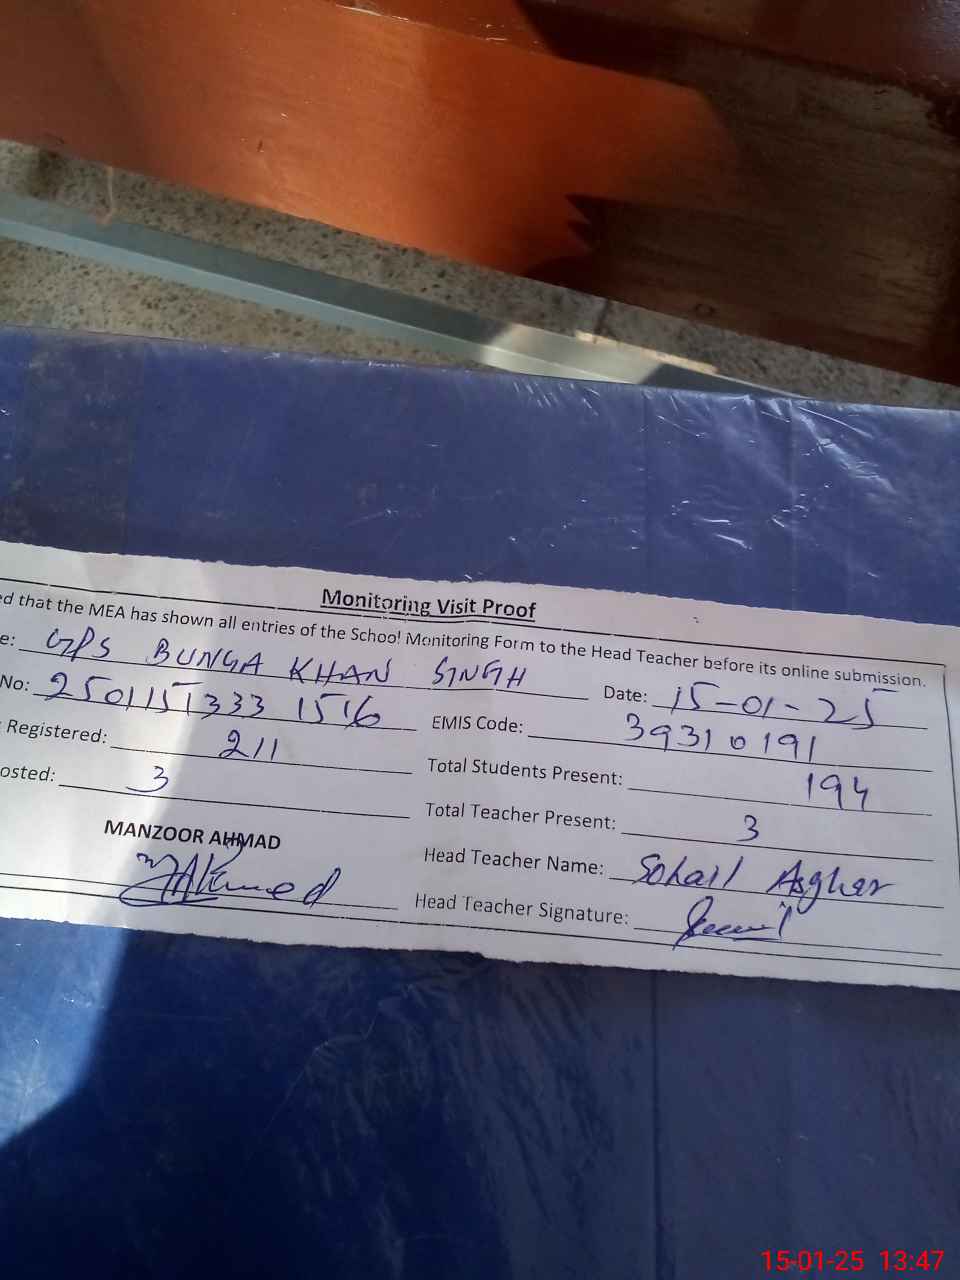 Monitoring Visit Proof
ed that the MEA has shown all entries of the School Monitoring Form to the Head Teacher before its online submission.
e: GPS BUNGA KHAN SINGH Date: 15-01-25
No: 2501151333 1516 EMIS Code: 39310191
Registered: 211 Total Students Present: 194
osted: 3 Total Teacher Present: 3
MANZOOR AHMAD Head Teacher Name: Sohail Asghar
Head Teacher Signature:
15-01-25 13:47